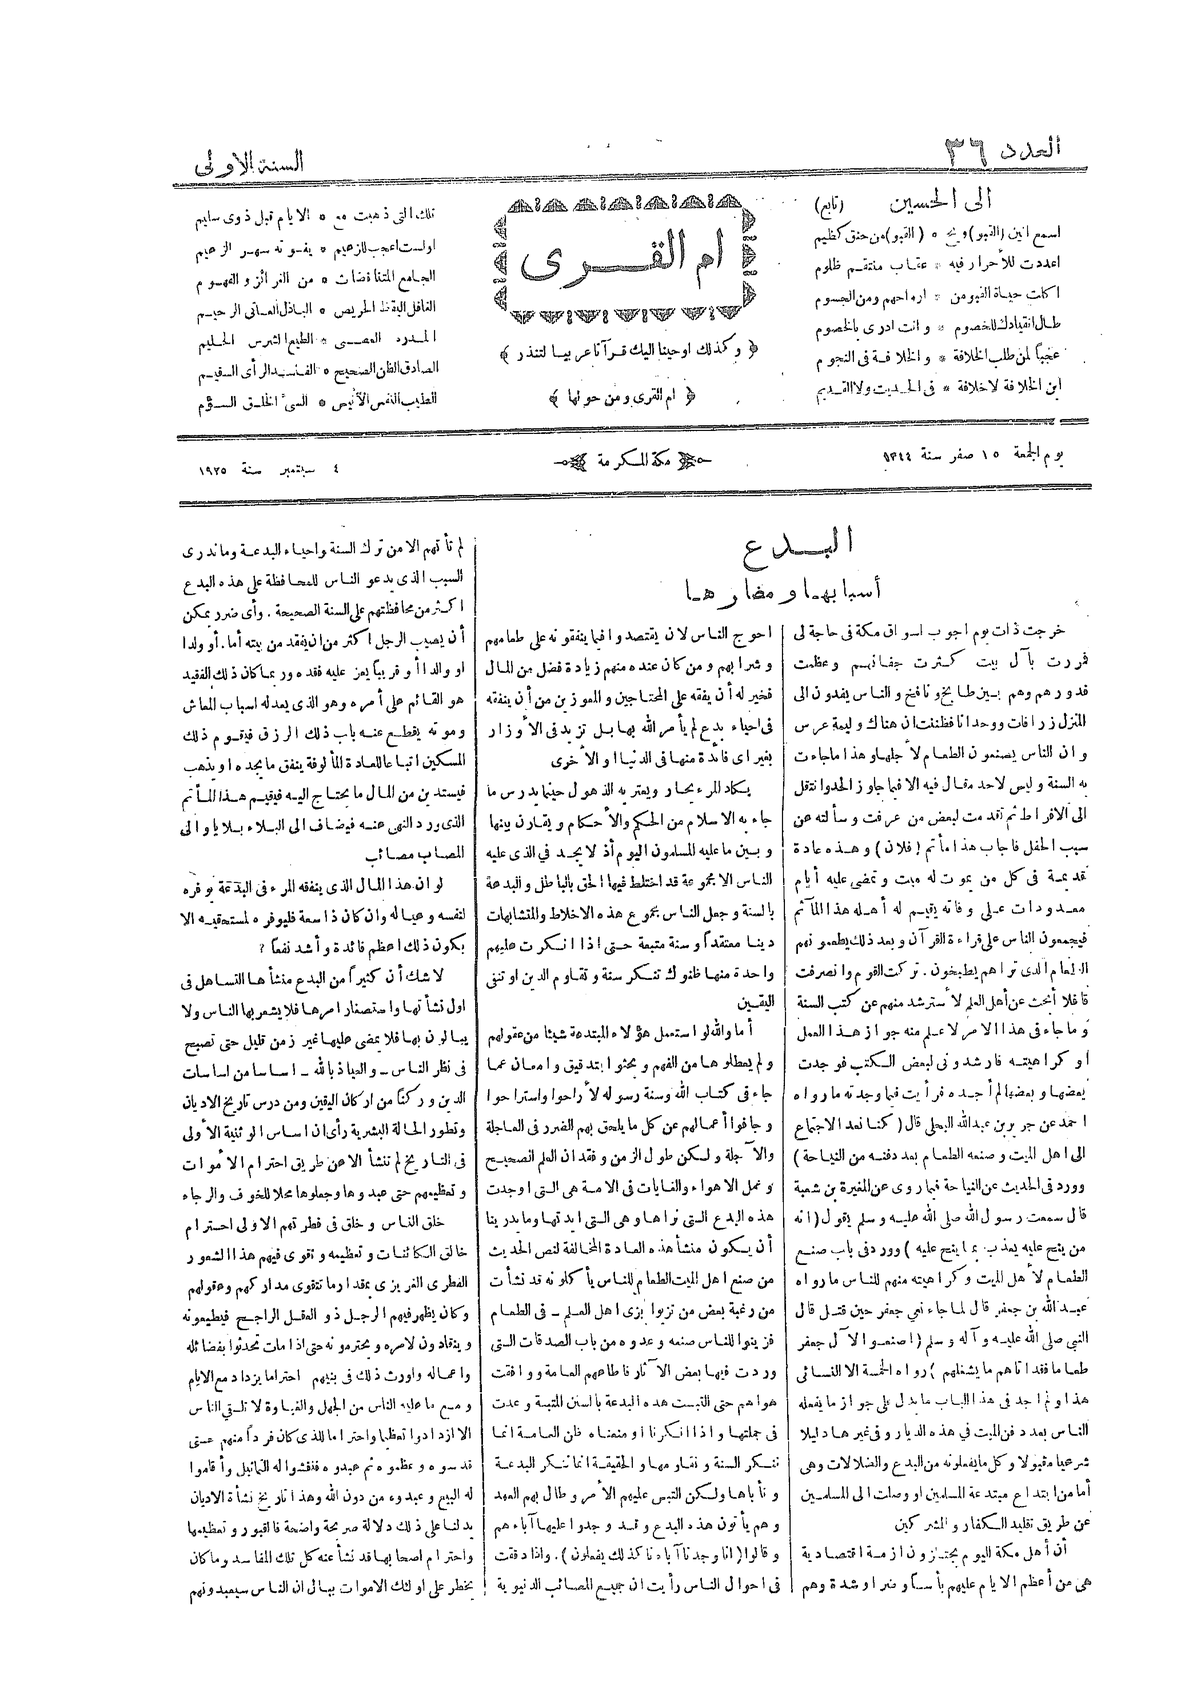 العدد ٣٦
السنة الاولى
الى الحسين (تابع)
اسمع انين (القبو) ويح * (القبو) من حنق كظيم
اعددت للأحرار فيه * عقاب منتقم ظلوم
اكلت حياة القبو من * ارواحهم ومن الجسوم
طال انقيادك للخصوم * وانت ادرى بالخصوم
عجباً لمن طلب الخلافة * والخلافة في النجوم
ابن الخلافة لاخلافة * في الحديث ولا القديم
ام القــرى
﴿ وكذلك اوحينا اليك قرآنا عربيا لتنذر ﴾
﴿ ام القرى ومن حولها ﴾
تلك التى ذهبت مع * الايام قبل ذوى سليم
اولست اعجب للزعيم * يفوته سهر الزعيم
الجامع المتناقضات * من الغرائز والفهوم
الغافل اليقظ الحريص * الباذل العانى الرحيم
المدره العصبى * الطبع الشرس الحليم
الصادق الظن الصحيح * الفاسد الرأى السقيم
الطيب النفس الأنيس * السئ الخلق السؤم
يوم الجمعة ١٥ صفر سنة ١٣٤٤
مكة المكرمة
٤ سبتمبر سنة ١٩٢٥
البــدع
أسبابهـا ومضارهـا
خرجت ذات يوم اجوب اسواق مكة فى حاجة لى
فمررت بآل بيت كثرت جفانهم وعظمت
قدورهم وهم بين طابخ ونافخ والناس يفدون الى
المنزل زرافات ووحدانا فظننت ان هناك وليمة عرس
وان الناس يصنعون الطعام لأجلها وهذا ماجاءت
به السنة وليس لاحد مقال فيه الا فيما جاوز الحد وانتقل
الى الافراط ثم تقدمت لبعض من عرفت وسألته عن
سبب الحفل فاجاب هذا مأتم (فلان) وهذه عادة
قديمة فى كل من يموت له ميت وتمضى عليه أيام
معدودات على وفاته يقيم له أهله هذا المآتم
فيجمعون الناس على قراءة القرآن وبعد ذلك يطعمونهم
الطعام الذى تراهم يطبخون. تركت القوم وانصرفت
قافلا أبحث عن أهل العلم لأسترشد منهم عن كتب السنة
وما جاء فى هذا الامر لاعلم منه جواز هذا العمل
أو كراهيته فارشدونى لبعض الكتب فوجدت
بعضها وبعضها لم أجده فرأيت فيما وجدته مارواه
احمد عن جرير بن عبدالله البجلى قال (كنا نعد الاجتماع
الى اهل الميت وصنعه الطعام بعد دفنه من النياحة)
وورد فى الحديث عن النياحة فيما روى عن المغيرة بن شعبة
قال سمعت رسول الله صلى الله عليه وسلم يقول (انه
من ينح عليه يعذب بما ينح عليه) وورد فى باب صنع
الطعام لأهل الميت وكراهيته منهم للناس مارواه
عبد الله بن جعفر قال لما جاء نعي جعفر حين قتل قال
النبى صلى الله عليه وآله وسلم (اصنعوا لآل جعفر
طعاما فقد اتاهم ما يشغلهم) رواه الخمسة الا النسائى
هذا ولم اجد فى هذا الباب ما يدل على جواز ما يفعله
الناس بعد دفن الميت في هذه الديار وفى غيرها دليلا
شرعيا مقبولا وكل ما يفعلونه من البدع والضلالات وهى
أما من ابتداع مبتدعة المسلمين او وصلت الى المسلمين
عن طريق تقليد الكفار والمشركين
أن أهل مكة اليوم يجتازون ازمة اقتصادية
هى من أعظم الايام عليهم بأساً وضراً وشدة وهم
احوج الناس لان يقتصدوا فيما ينفقونه على طعامهم
وشرابهم ومن كان عنده منهم زيادة فضل من المال
فخير له أن يفقه على المحتاجين والمعوزين من أن ينفقه
فى احياء بدع لم يأمر الله بها بل تزيد فى الأوزار
بغير اى فائدة منها فى الدنيا او الأخرى
يكاد المرء يحار ويعتريه الذهول حينما يدرس ما
جاء به الاسلام من الحكم والأحكام ويقارن بينها
وبين ما عليه المسلمون اليوم أذ لا يجد في الذى عليه
الناس الا مجموعة قد اختلط فيها الحق بالباطل والبدعة
بالسنة وجعل الناس مجموع هذه الاخلاط والمتشابهات
دينا معتقداً وسنة متبعة حتى اذا انكرت عليهم
واحدة منها ظنوك تنكر سنة وتقاوم الدين او تنفى
اليقين
أما والله لو استعمل هؤلاء المبتدعة شيئا من عقولهم
ولم يعطلوها من الفهم وبحثوا بتدقيق وامعان عما
جاء فى كتاب الله وسنة رسوله لأراحوا واستراحوا
وجافوا أعمالهم عن كل ما يلحق بهم الضرر فى العاجلة
والآجلة ولكن طول الزمن وفقدان العلم الصحيح
وعمل الاهواء والغايات فى الامة هى التى اوجدت
هذه البدع التى نراها وهى التى ابدتها وما يدرينا
أن يكون منشأ هذه العادة المخالفة لنص الحديث
من صنع اهل الميت الطعام للناس يأكلونه قد نشأت
من رغبة بعض من تزيوا بزى اهل العلم – فى الطعام
فزينوا للناس صنعه وعدوه من باب الصدقات التى
وردت فيها بعض الآثار فاطاعهم العامة ووافقت
هواهم حتى التبست هذه البدعة بالسنن المثبتة وعدت
فى جملتها واذا انكرنا او منعناه ظن العامة انما
ننكر السنة ونقاومها والحقيقة انما ننكر البدعة
ونأباها ولكن التبس عليهم الأمر وطال بهم العهد
وهم يأتون هذه البدع وقد وجدوا عليها آباءهم
وقالوا (انا وجدنا آباءنا كذلك يفعلون). واذا دققت
فى احوال الناس رأيت ان جميع المصائب الدنيوية
لم تأتهم الا من ترك السنة واحياء البدعة وما ندرى
السبب الذى يدعو الناس للمحافظة على هذه البدع
اكثر من محافظتهم على السنة الصحيحة. وأى ضرر يمكن
أن يصيب الرجل اكثر من ان يفقد من بيته أما. أو ولدا
او والداً أو قريباً يعز عليه فقده وربما كان ذلك الفقيد
هو القائم على أمره وهو الذى يعد له اسباب المعاش
وموته يقطع عنه باب ذلك الرزق فيقوم ذلك
المسكين اتباعا للعادة المألوفة ينفق ما يجده او يذهب
فيستدين من المال ما يحتاج اليه فيقيم هذا المأتم
الذى ورد النهى عنه فيضاف الى البلاء بلايا والى
المصاب مصائب
لو ان هذا المال الذى ينفقه المرء فى البدعة يوفره
لنفسه وعياله وان كان ذا سعة فليوفره لمستحقيه الا
يكون ذلك اعظم فائدة وأشد نفعاً ؟
لاشك أن كثيراً من البدع منشأها التساهل فى
اول نشأتها واستصغار امرها فلا يشعر بها الناس ولا
يبالون بها فلا يمضى عليها غير زمن قليل حتى تصبح
فى نظر الناس – والعياذ بالله – اساسا من اساسات
الدين وركناً من اركان اليقين ومن درس تاريخ الاديان
وتطور الحالة البشرية رأى ان اساس الوثنية الأولى
فى التاريخ لم تنشأ الا عن طريق احترام الأموات
وتعظيمهم حتى عبدوها وجعلوها محلا للخوف والرجاء
خلق الناس وخلق فى فطرتهم الاولى احترام
خالق الكائنات وتعظيمه وتقوى فيهم هذا الشعور
الفطرى الغريزى بمقدار ما تتقوى مداركهم وعقولهم
وكان يظهر فيهم الرجل ذو العقل الراجح فيطيعونه
وينقادون لامره ويحترمونه حتى اذا مات تحدثوا بفضائله
واعماله واورث ذلك فى بنيهم احتراما يزداد مع الايام
ومع ما عليه الناس من الجهل والغباوة لا تلقي الناس
الا ازدادوا تعظيما واحتراما للذى كان فرداً منهم حتى
قدسوه وعظموه ثم عبدوه فنقشوا له التماثيل وأقاموا
له البيع وعبدوه من دون الله وهذا تاريخ نشأة الاديان
يدلنا على ذلك دلالة صريحة واضحة فالقبور وتعظيمها
واحترام اصحابها قد نشأ عنه كل تلك المفاسد وما كان
يخطر على اولئك الاموات ببال ان الناس سيعبدونهم